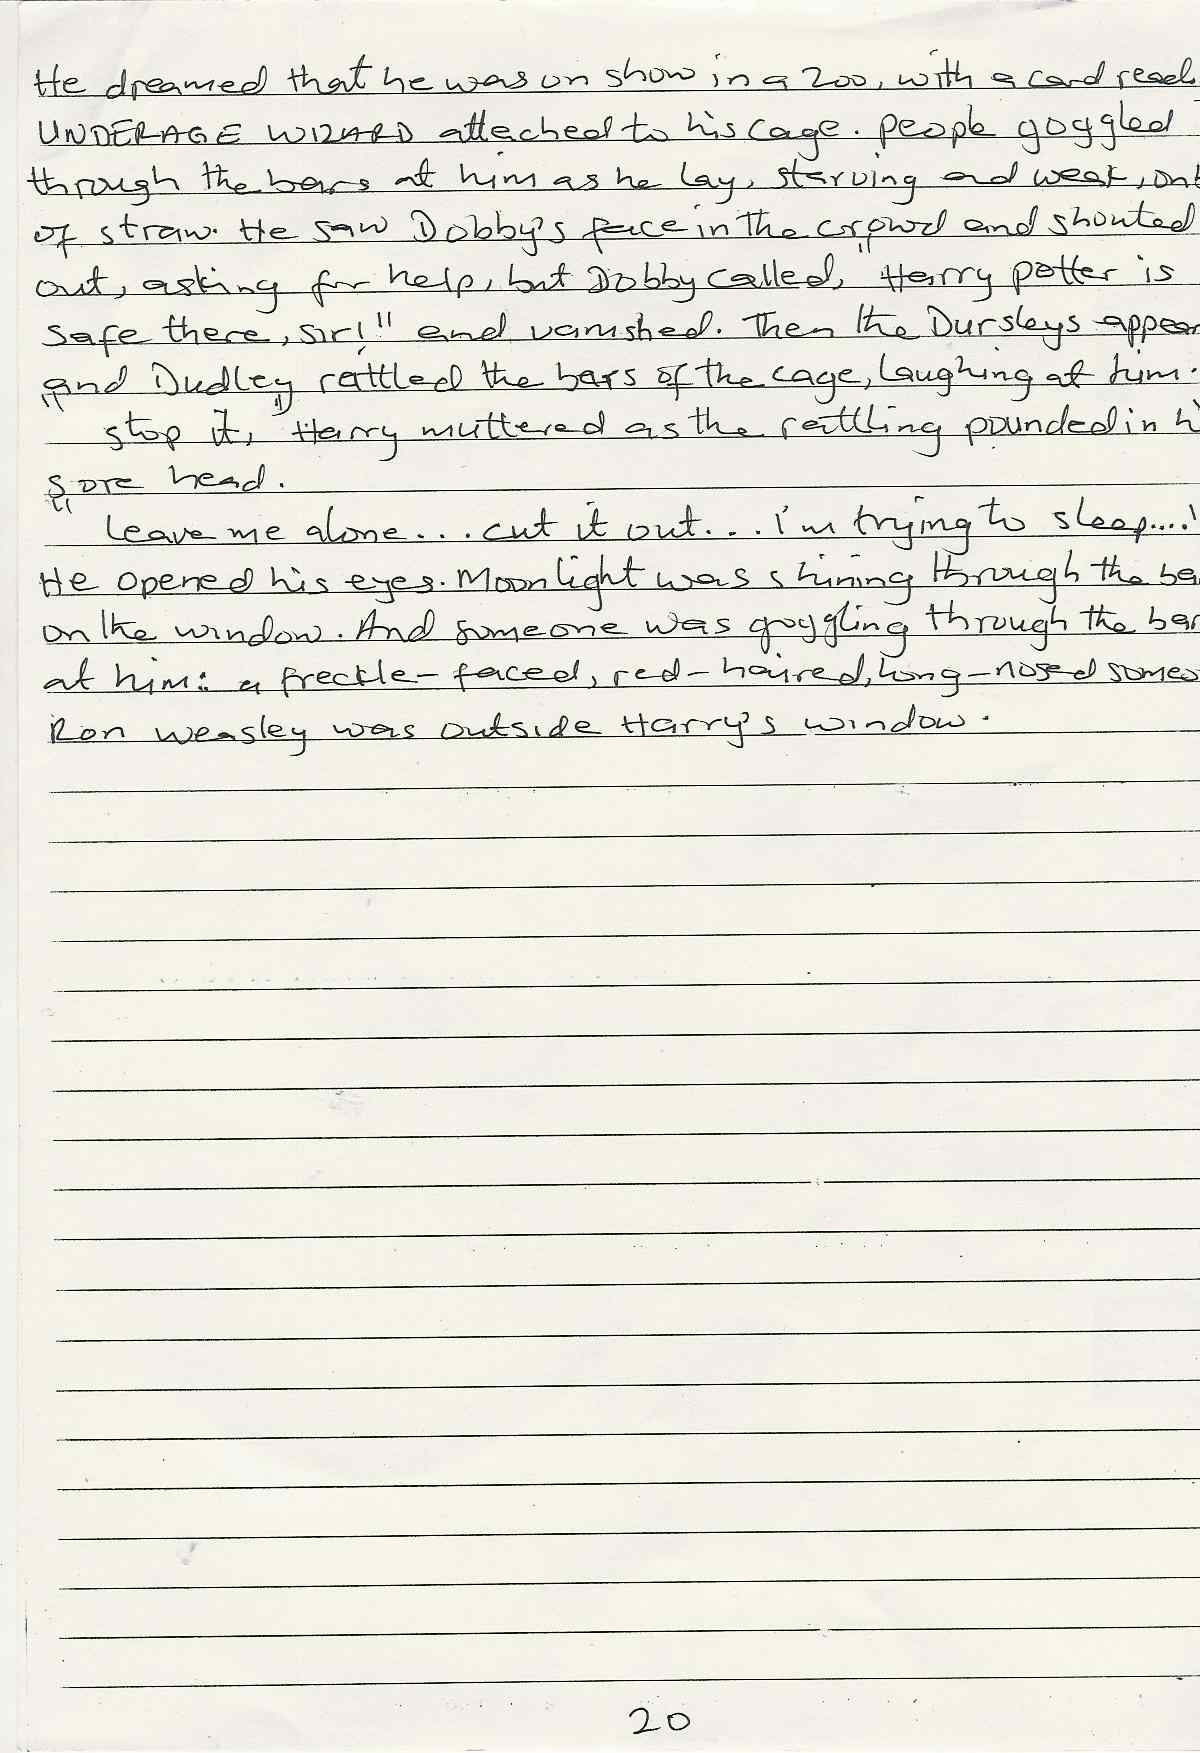 He dreamed that he was on show in a zoo, with a card read
UNDERAGE WIZARD attached to his cage. people goggled
through the bars at him as he lay, starving and weak, on
of straw. He saw Dobby's face in the crowd and shouted
out, asking for help, but Dobby called, "Harry potter is
safe there, sir!" and vanished. Then the Dursleys appear
and Dudley rattled the bars of the cage, laughing at him.
"stop it," Harry muttered as the rattling pounded in hi
sore head.
"leave me alone... cut it out... i'm trying to sleep....!
He opened his eyes. Moonlight was shining through the ba
on the window. And someone was goggling through the bar
at him: a freckle-faced, red-haired, long-nosed someo
Ron weasley was outside Harry's window.
20